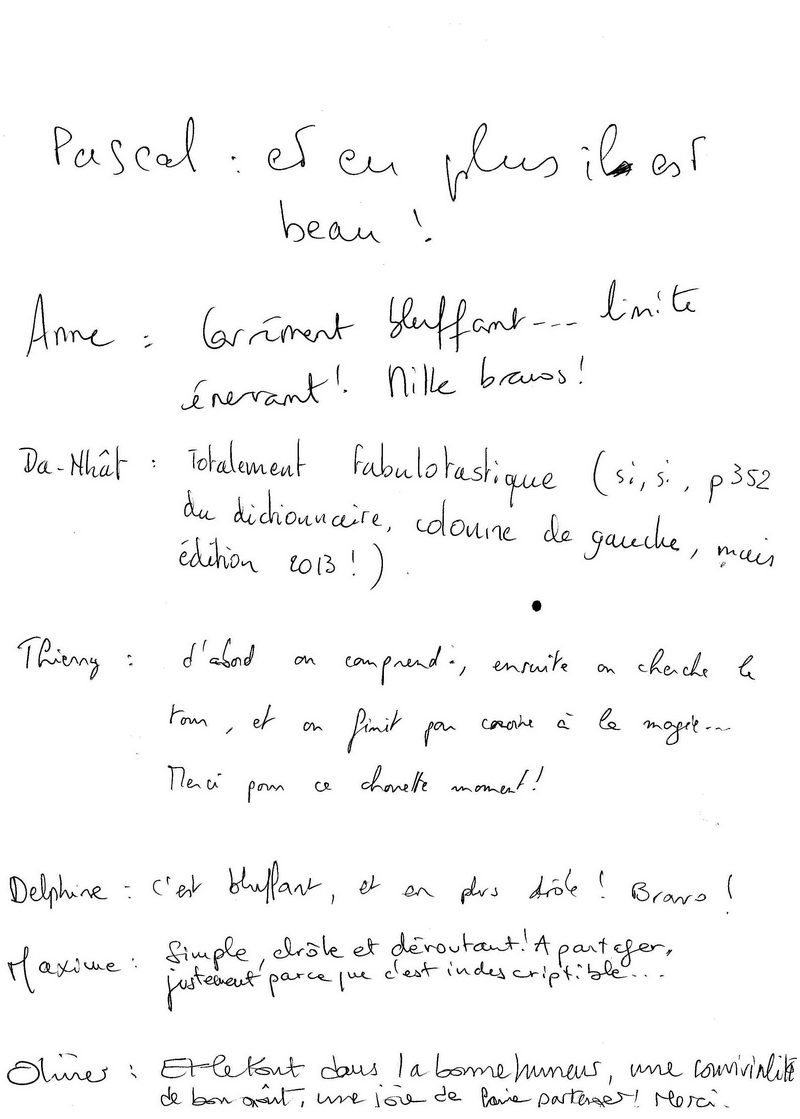 Pascal : et en plus il est
beau !
Anne : Carrément bluffant... limite
énervant ! Mille bravos !
Da-Nhât : Totalement fabulotastique (si, si, p352
du dictionnaire, colonne de gauche, mais
édition 2013 !).
Thierry : d'abord on comprend :, ensuite on cherche le
tour, et on finit par croire à la magie...
Merci pour ce chouette moment !
Delphine : c'est bluffant, et en plus drôle ! Bravo !
Maxime : Simple, drôle et déroutant ! A partager,
justement parce que c'est indescriptible...
Olivier : Et le tout dans la bonne humeur, une convivialité
de bon goût, une joie de faire partager ! Merci.